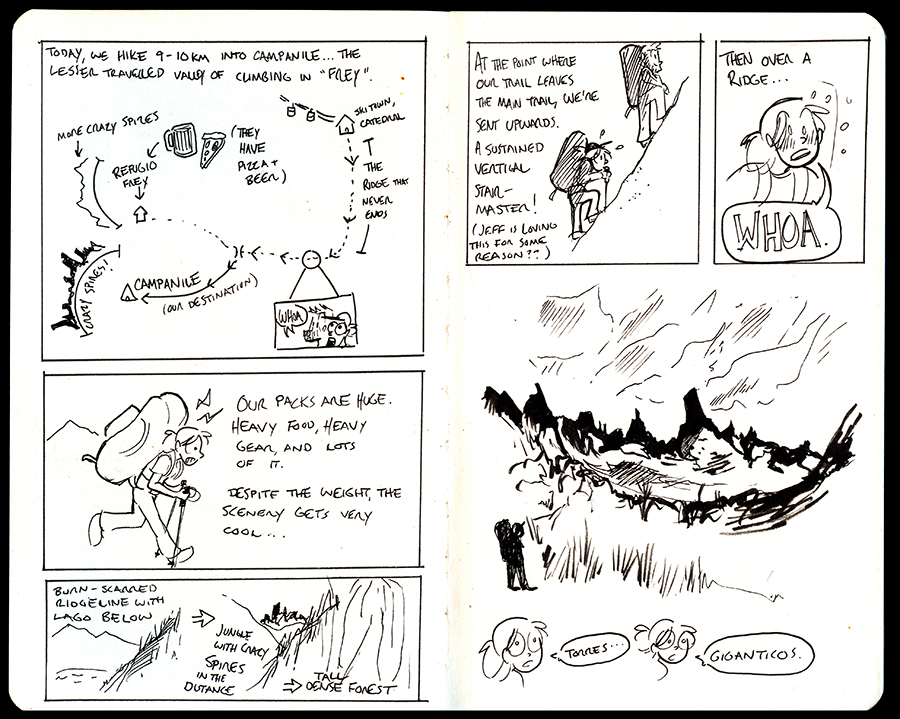 TODAY, WE HIKE 9-10KM INTO CAMPANILE... THE
LESSER TRAVELLED VALLEY OF CLIMBING IN "FREY".
MORE CRAZY SPIRES
REFUGIO
FREY
(THEY
HAVE
PIZZA +
BEER)
SKI TOWN,
CATEDRAL
THE
RIDGE THAT
NEVER
ENDS
CRAZY SPIRES!
CAMPANILE
(OUR DESTINATION)
WHOA
OUR PACKS ARE HUGE.
HEAVY FOOD, HEAVY
GEAR, AND LOTS
OF IT.
DESPITE THE WEIGHT, THE
SCENERY GETS VERY
COOL...
BURN-SCARRED
RIDGELINE WITH
LAGO BELOW
JUNGLE
WITH CRAZY
SPIRES
IN THE
DISTANCE
TALL
DENSE FOREST
AT THE POINT WHERE
OUR TRAIL LEAVES
THE MAIN TRAIL, WE'RE
SENT UPWARDS.
A SUSTAINED
VERTICAL
STAIR-
MASTER!
(JEFF IS LOVING
THIS FOR SOME
REASON??)
THEN OVER A
RIDGE...
WHOA.
TORRES...
GIGANTICOS.